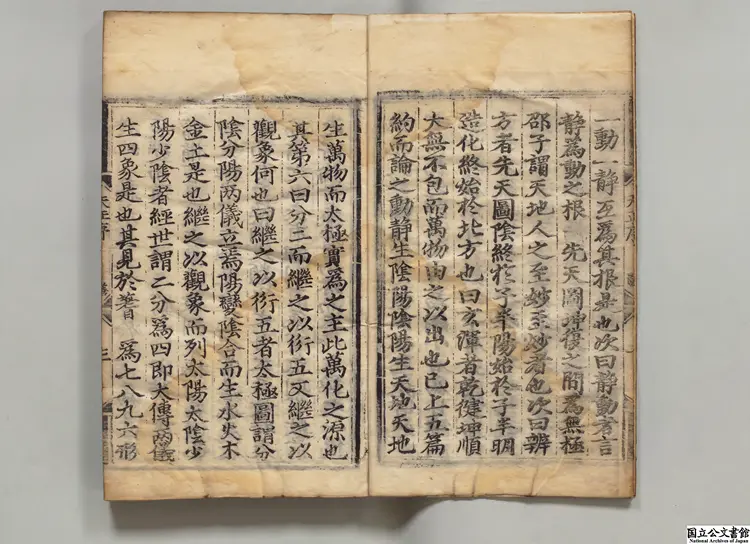 一動一静互爲其根是也次曰静動者言
静爲動之根 先天圖坤復之間爲無極
邵子謂天地人之至妙至妙者也次曰辨
方者先天圖陰終於子半陽始於子半明
造化終始於北方也曰玄渾者乾健坤順
大無不包而萬物由之以出也已上五篇
約而論之動静生陰陽陰陽生天地天地
生萬物而太極實爲之主此萬化之源也
其第六曰分二而繼之以衍五又繼之以
觀象何也曰繼之以衍五者太極圖謂分
陰分陽两儀立焉陽變陰合而生水火木
金土是也繼之以觀象而列太陽太陰少
陽少陰者經世謂二分爲四即大傳两儀
生四象是也其見於蓍 爲七八九六形
序
三
国立公文書館
National Archives of Japan